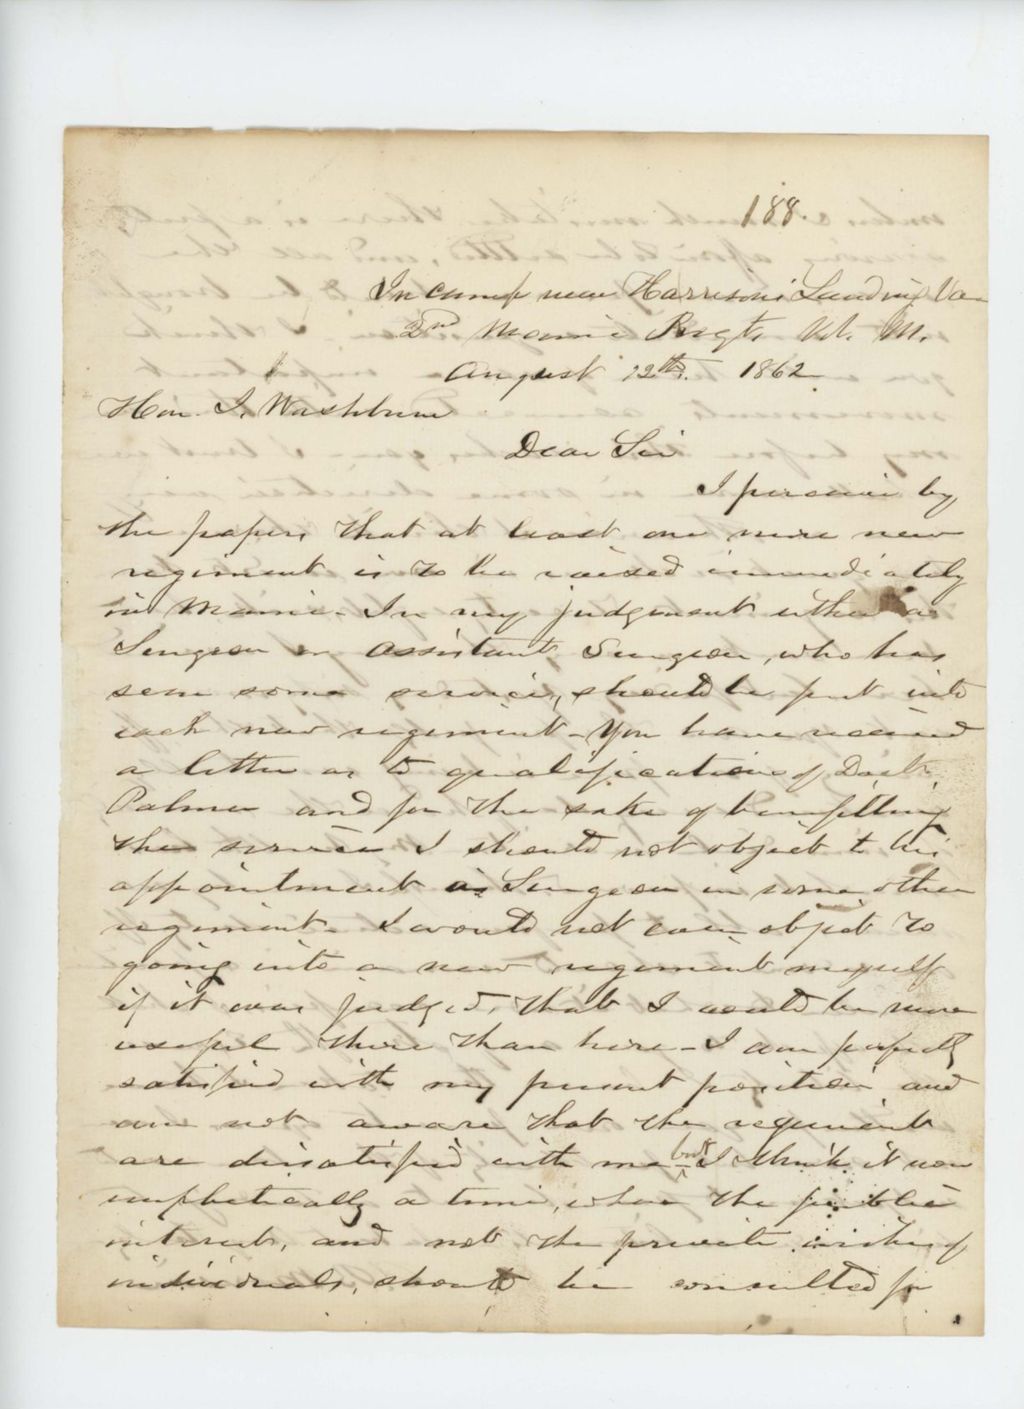 188.
In camp near Harrison's Landing Va
2nd Maine Regt. Vol. M.
August 12th. 1862
Hon. I. Washburn
Dear Sir
I perceive by
the papers that at least one more new
regiment is to be raised immediately
in Maine. In my judgement either a
Surgeon or assistant Surgeon, who has
seen some service, should be put into
each new regiment - You have received
a letter as to qualification of Doct.
Palmer and for the sake of benefitting
the service I should not object to his
appointment as Surgeon in some other
regiment. I would not even object to
going into a new regiment myself
if it was judged, that I would be more
useful there than here - I am perfectly
satisfied with my present position and
am not aware that the regiment
are dissatisfied with me - but I think it now
emphatically a time, when the public
interest, and not the private wishes of
individuals, should be consulted for